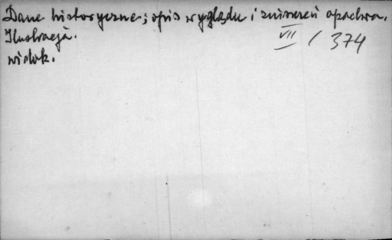 Dane historyczne; opis wyglądu i zniszczeń opactwa.
Ilustracja.
VII / 374
widok.